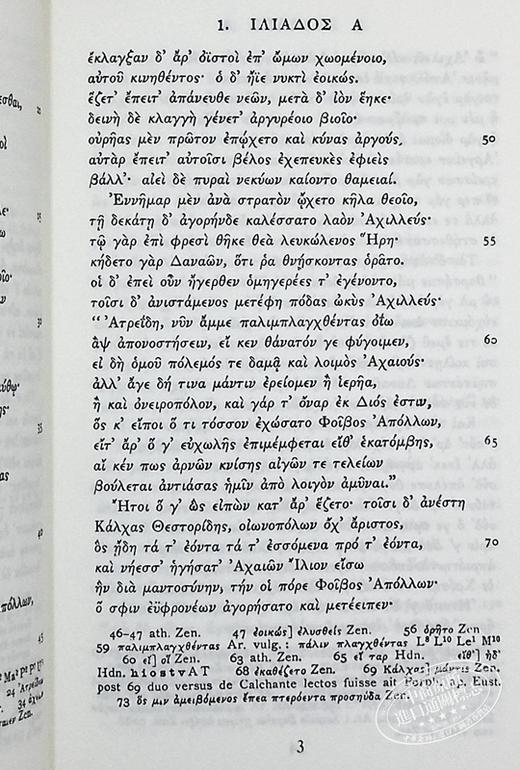 1. ΙΛΙΑΔΟΣ Α
ἔκλαγξαν δ' ἄρ' ὀϊστοὶ ἐπ' ὤμων χωομένοιο,
αὐτοῦ κινηθέντος· ὁ δ' ἤϊε νυκτὶ ἐοικώς.
ἕζετ' ἔπειτ' ἀπάνευθε νεῶν, μετὰ δ' ἰὸν ἕηκε·
δεινὴ δὲ κλαγγὴ γένετ' ἀργυρέοιο βιοῖο·
οὐρῆας μὲν πρῶτον ἐπῴχετο καὶ κύνας ἀργούς, 50
αὐτὰρ ἔπειτ' αὐτοῖσι βέλος ἐχεπευκὲς ἐφιεὶς
βάλλ'· αἰεὶ δὲ πυραὶ νεκύων καίοντο θαμειαί.
Ἐννῆμαρ μὲν ἀνὰ στρατὸν ᾤχετο κῆλα θεοῖο,
τῇ δεκάτῃ δ' ἀγορήνδε καλέσσατο λαὸν Ἀχιλλεύς·
τῷ γὰρ ἐπὶ φρεσὶ θῆκε θεὰ λευκώλενος Ἥρη· 55
κήδετο γὰρ Δαναῶν, ὅτι ῥα θνῄσκοντας ὁρᾶτο.
οἱ δ' ἐπεὶ οὖν ἤγερθεν ὁμηγερέες τ' ἐγένοντο,
τοῖσι δ' ἀνιστάμενος μετέφη πόδας ὠκὺς Ἀχιλλεύς·
“Ἀτρεΐδη, νῦν ἄμμε παλιμπλαγχθέντας ὀΐω
ἂψ ἀπονοστήσειν, εἴ κεν θάνατόν γε φύγοιμεν, 60
εἰ δὴ ὁμοῦ πόλεμός τε δαμᾷ καὶ λοιμὸς Ἀχαιούς·
ἀλλ' ἄγε δή τινα μάντιν ἐρείομεν ἢ ἱερῆα,
ἢ καὶ ὀνειροπόλον, καὶ γάρ τ' ὄναρ ἐκ Διός ἐστιν,
ὅς κ' εἴποι ὅ τι τόσσον ἐχώσατο Φοῖβος Ἀπόλλων,
εἴτ' ἄρ' ὅ γ' εὐχωλῆς ἐπιμέμφεται εἴθ' ἑκατόμβης, 65
αἴ κέν πως ἀρνῶν κνίσης αἰγῶν τε τελείων
βούλεται ἀντιάσας ἡμῖν ἀπὸ λοιγὸν ἀμῦναι.”
Ἤτοι ὅ γ' ὣς εἰπὼν κατ' ἄρ' ἕζετο· τοῖσι δ' ἀνέστη
Κάλχας Θεστορίδης, οἰωνοπόλων ὄχ' ἄριστος,
ὃς ᾔδη τά τ' ἐόντα τά τ' ἐσσόμενα πρό τ' ἐόντα, 70
καὶ νήεσσ' ἡγήσατ' Ἀχαιῶν Ἴλιον εἴσω
ἣν διὰ μαντοσύνην, τήν οἱ πόρε Φοῖβος Ἀπόλλων·
ὅ σφιν ἐϋφρονέων ἀγορήσατο καὶ μετέειπεν·
46-47 ath. Zen. 47 ἐοικώς] ἐλυσθείς Zen. 56 ὁρῆτο Zen
59 παλιμπλαγχθέντας Ar. vulg. : πάλιν πλαγχθέντας L⁸ L¹⁰ Le¹ M¹⁰
60 εἴ] οἵ Zen. 63 ath. Zen. 65 εἰ ταρ Hdn. εἴθ'] ἠδ'
Hdn. h i o s t v A T 68 ἐκαθέζετο Zen. 69 Κάλχας] μάντις Zen.
post 69 duo versus de Calchante lectos fuisse ait Porph. ap. Eust.
73 ὅς μιν ἀμειβόμενος ἔπεα πτερόεντα προσηύδα Zen.
3